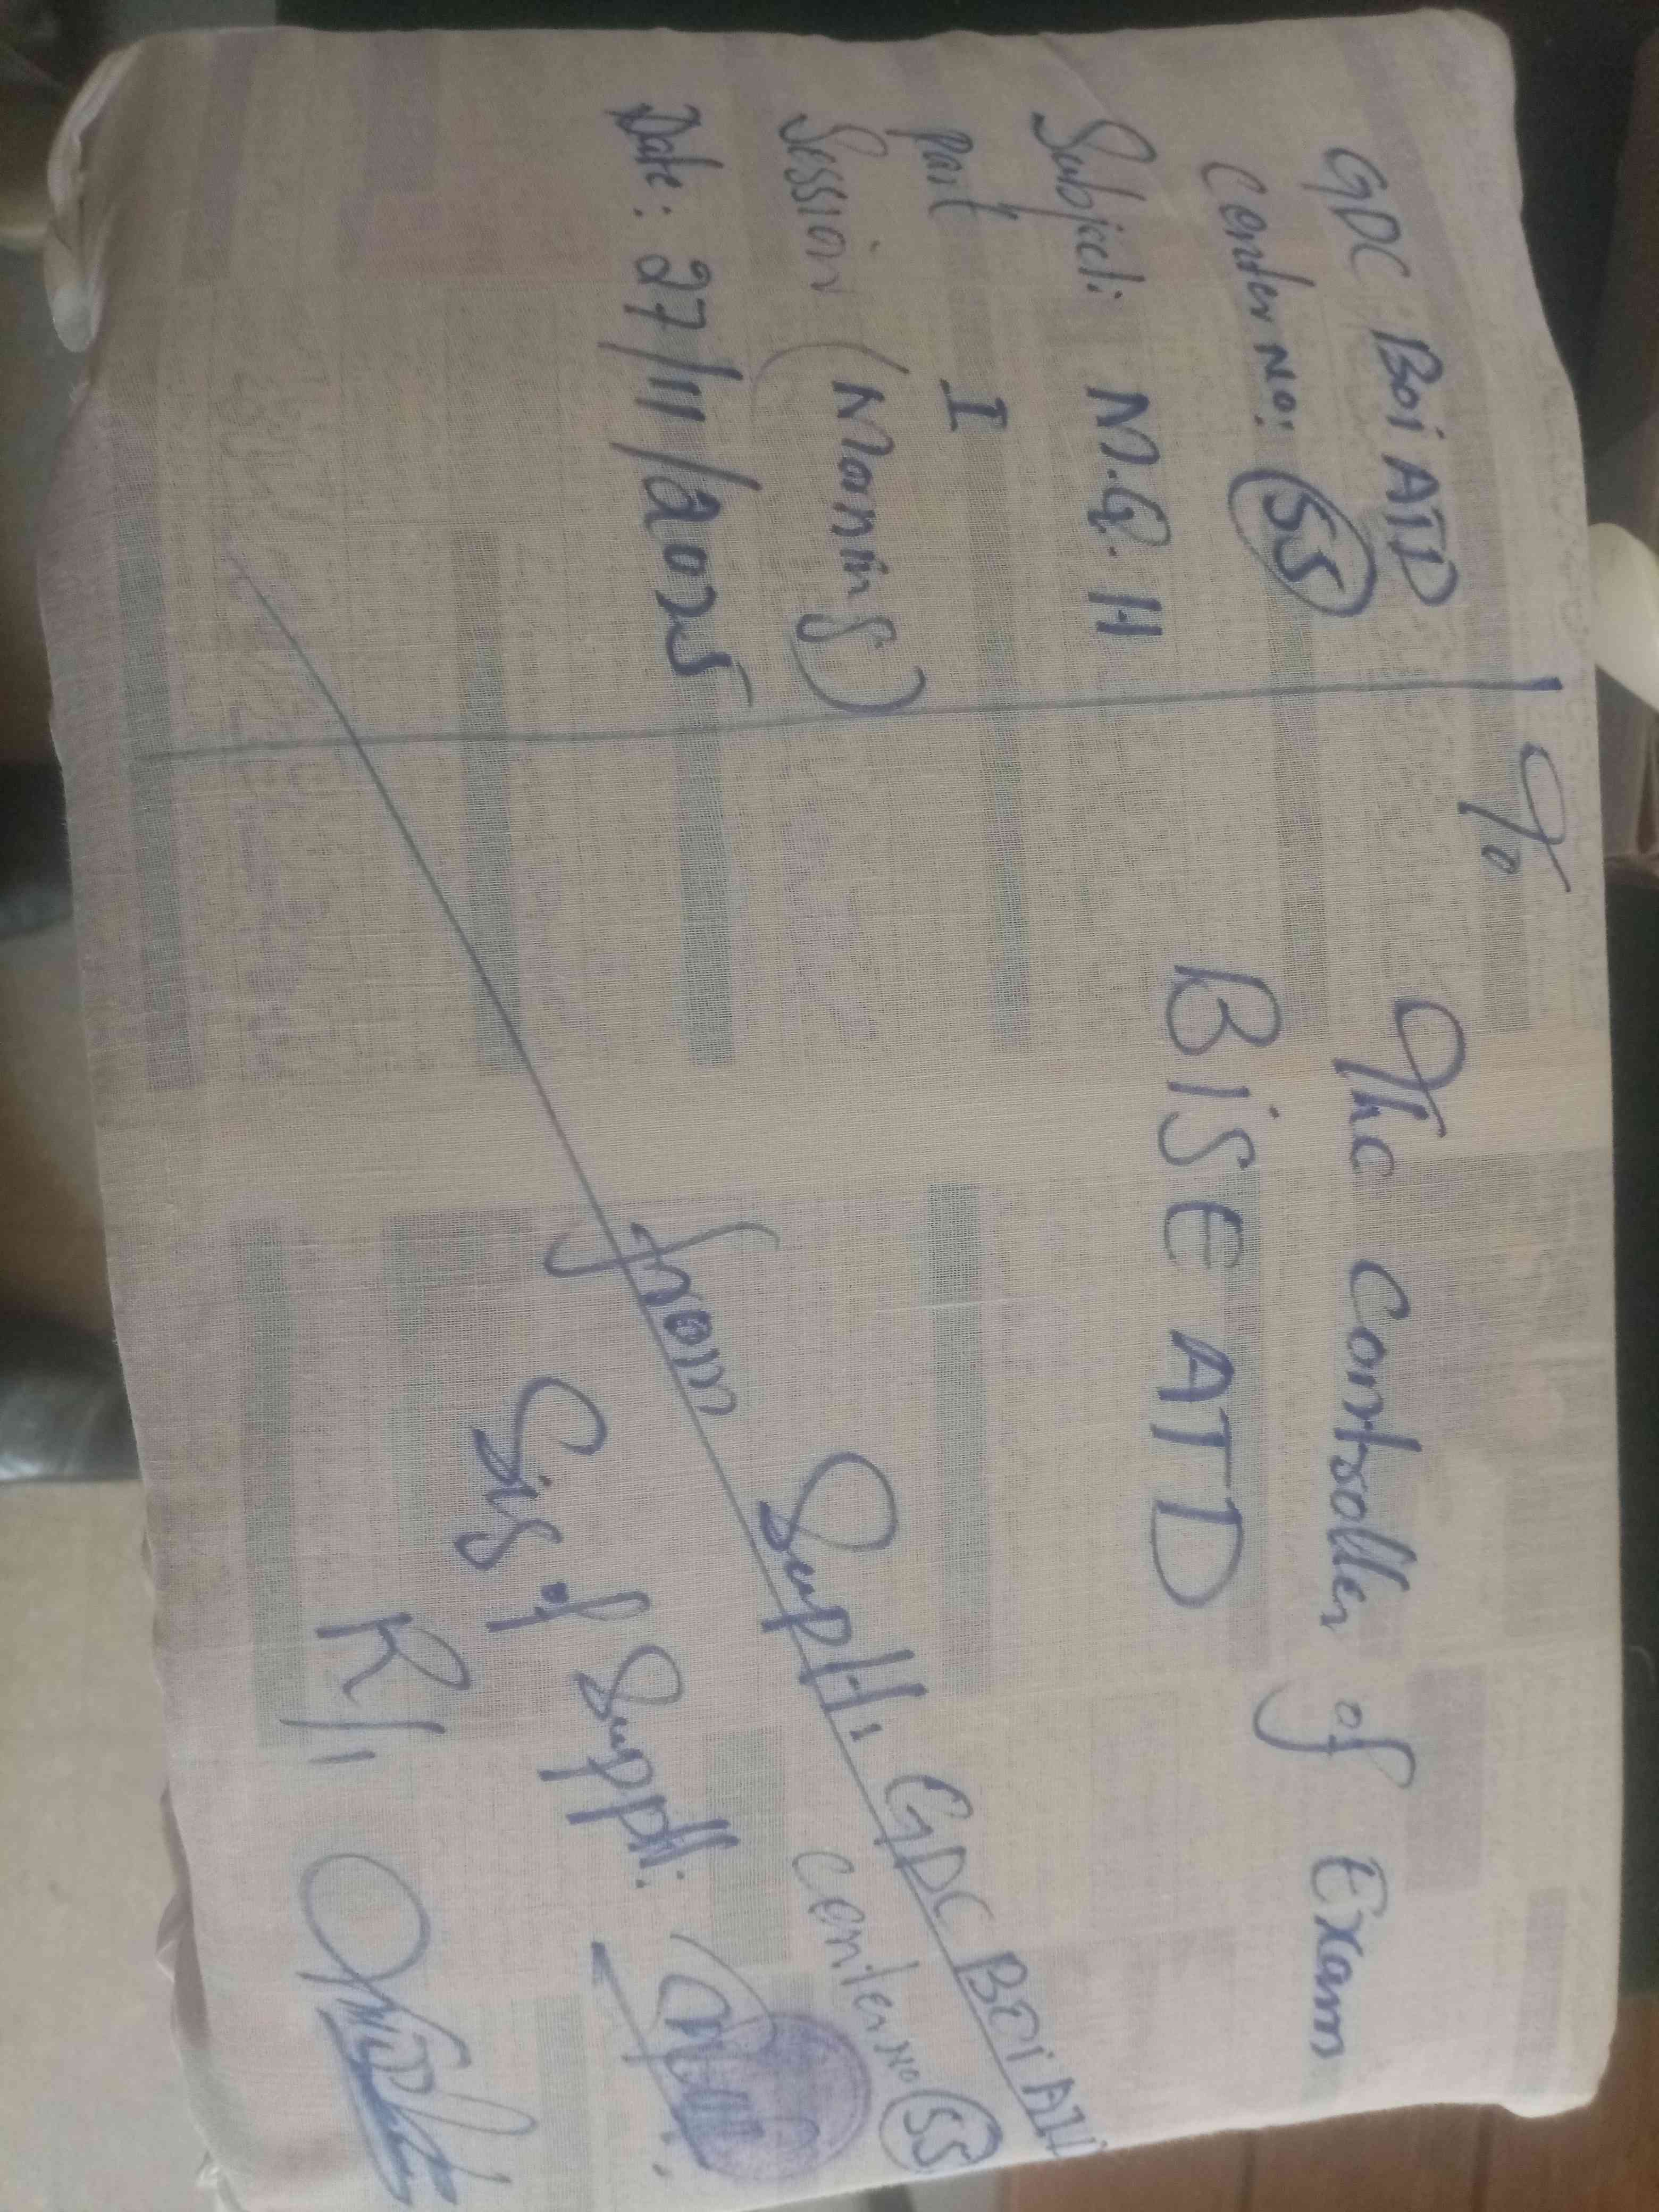 GDC Boi ATD
Center No: 55
Subject: M.Q.H
Part I
Session (Morning)
Date: 27/11/2025
To
The Controller of Exam
BiSE ATD
from Suptt: GDC Boi Atd
Center No 55
Sig of Supptt:
R/I